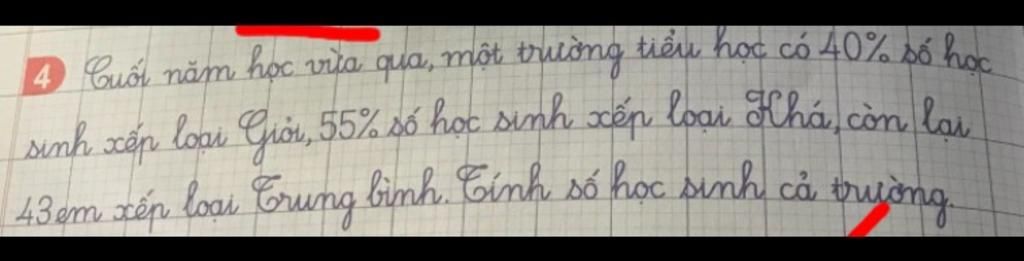 4 Cuối năm học vừa qua, một trường tiểu học có 40% số học
sinh xếp loại Giỏi, 55% số học sinh xếp loại Khá, còn lại
43 em xếp loại Trung bình. Tính số học sinh cả trường.